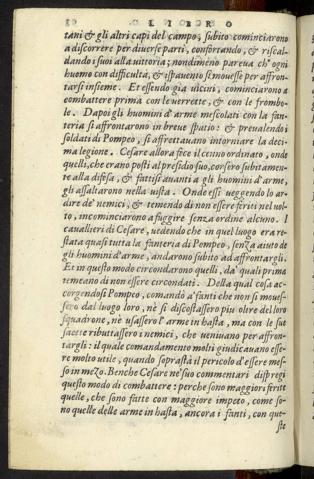 80 LIBRO
tani & gli altri capi del campo, subito cominciarono
a discorrere per diuerse parti, confortando, & riscal-
dando i suoi alla uittoria; nondimeno pareua ch'ogni
huomo con difficultà, & spauento si mouesse per affron-
tarsi insieme. Et essendo gia uicini, cominciarono a
combattere prima con le uerrette, & con le frombo-
le. Dapoi gli huomini d'arme mescolati con la fan-
teria si affrontarono in breue spatio: & preualendo i
soldati di Pompeo, si affrettauano intorniare la deci-
ma legione. Cesare allora fece il cenno ordinato, onde
quelli, che erano posti al presidio suo, corsero subitamen-
te alla difesa, & fattisi auanti a gli huomini d'arme,
gli assaltarono nella uista. Onde essi ueggendo lo ar-
dire de' nemici, & temendo di non essere feriti nel uol-
to, incominciarono a fuggire senza ordine alcuno. I
cauallieri di Cesare, uedendo che in quel luogo era re-
stata quasi tutta la fanteria di Pompeo, senza aiuto de
gli huomini d'arme, andarono subito ad affrontargli.
Et in questo modo circondarono quelli, da' quali prima
temeano di non essere circondati. Della qual cosa ac-
corgendosi Pompeo, comandò a' fanti che non si moues-
sero dal luogo loro, nè si discostassero piu oltre del loro
squadrone, nè usassero l'arme in hasta, ma con le sue
saette ributtassero i nemici, che ueniuano per affron-
targli: il quale comandamento molti giudicauano esse-
re molto utile, quando soprastà il pericolo d'essere mes-
so in mezo. Benche Cesare ne' suo commentari dispregi
questo modo di combattere: perche sono maggiori ferite
quelle, che sono fatte con maggiore impeto, come so-
no quelle delle arme in hasta, ancora i fanti, con que-
ste